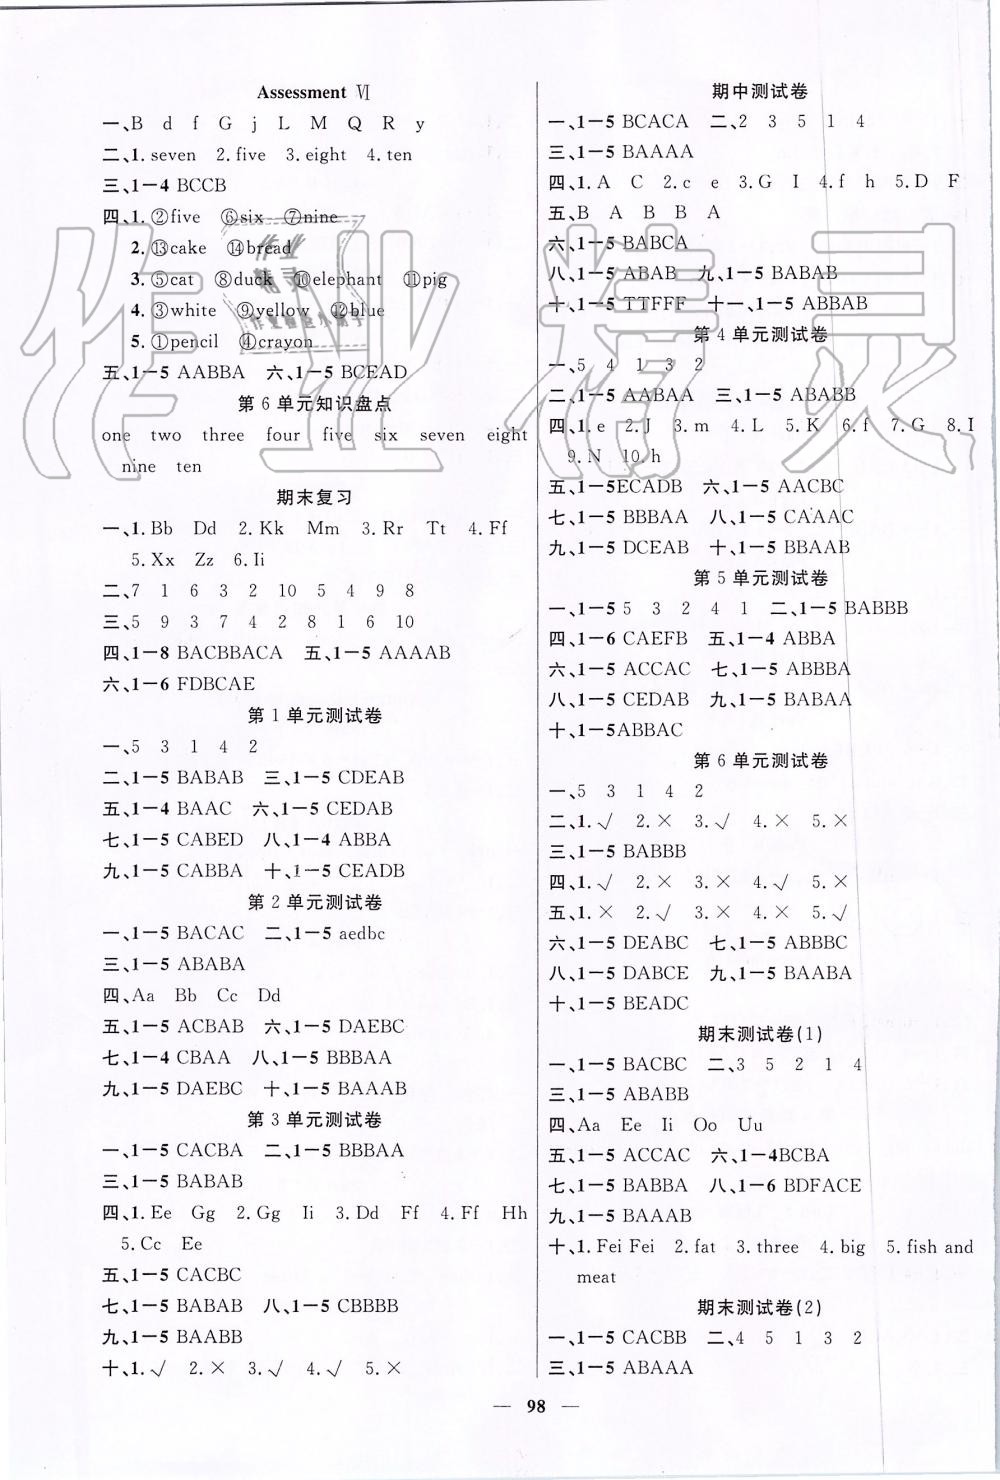 Assessment Ⅵ
一、B d f G j L M Q R y
二、1. seven 2. five 3. eight 4. ten
三、1－4 BCCB
四、1. ②five ⑥six ⑦nine
2. ⑬cake ⑭bread
3. ⑤cat ⑧duck ⑩elephant ⑪pig
4. ③white ⑨yellow ⑫blue
5. ①pencil ④crayon
五、1－5 AABBA 六、1－5 BCEAD
第 6 单元知识盘点
one two three four five six seven eight
nine ten
期末复习
一、1. Bb Dd 2. Kk Mm 3. Rr Tt 4. Ff
5. Xx Zz 6. Ii
二、7 1 6 3 2 10 5 4 9 8
三、5 9 3 7 4 2 8 1 6 10
四、1－8 BACBBACA 五、1－5 AAAAB
六、1－6 FDBCAE
第 1 单元测试卷
一、5 3 1 4 2
二、1－5 BABAB 三、1－5 CDEAB
五、1－4 BAAC 六、1－5 CEDAB
七、1－5 CABED 八、1－4 ABBA
九、1－5 CABBA 十、1－5 CEADB
第 2 单元测试卷
一、1－5 BACAC 二、1－5 aedbc
三、1－5 ABABA
四、Aa Bb Cc Dd
五、1－5 ACBAB 六、1－5 DAEBC
七、1－4 CBAA 八、1－5 BBBAA
九、1－5 DAEBC 十、1－5 BAAAB
第 3 单元测试卷
一、1－5 CACBA 二、1－5 BBBAA
三、1－5 BABAB
四、1. Ee Gg 2. Gg Ii 3. Dd Ff 4. Ff Hh
5. Cc Ee
五、1－5 CACBC
七、1－5 BABAB 八、1－5 CBBBB
九、1－5 BAABB
十、1. √ 2. × 3. √ 4. √ 5. ×
期中测试卷
一、1－5 BCACA 二、2 3 5 1 4
三、1－5 BAAAA
四、1. A C 2. c e 3. G I 4. f h 5. D F
五、B A B B A
六、1－5 BABCA
八、1－5 ABAB 九、1－5 BABAB
十、1－5 TTFFF 十一、1－5 ABBAB
第 4 单元测试卷
一、5 4 1 3 2
二、1－5 AABAA 三、1－5 ABABB
四、1. e 2. J 3. m 4. L 5. K 6. f 7. G 8. I
9. N 10. h
五、1－5ECADB 六、1－5 AACBC
七、1－5 BBBAA 八、1－5 CAAAC
九、1－5 DCEAB 十、1－5 BBAAB
第 5 单元测试卷
一、1－5 5 3 2 4 1 二、1－5 BABBB
四、1－6 CAEFB 五、1－4 ABBA
六、1－5 ACCAC 七、1－5 ABBBA
八、1－5 CEDAB 九、1－5 BABAA
十、1－5ABBAC
第 6 单元测试卷
一、5 3 1 4 2
二、1. √ 2. × 3. √ 4. × 5. ×
三、1－5 BABBB
四、1. √ 2. × 3. × 4. √ 5. ×
五、1. × 2. √ 3. × 4. × 5. √
六、1－5 DEABC 七、1－5 ABBBC
八、1－5 DABCE 九、1－5 BAABA
十、1－5 BEADC
期末测试卷(1)
一、1－5 BACBC 二、3 5 2 1 4
三、1－5 ABABB
四、Aa Ee Ii Oo Uu
五、1－5 ACCAC 六、1－4BCBA
七、1－5 BABBA 八、1－6 BDFACE
九、1－5 BAAAB
十、1. Fei Fei 2. fat 3. three 4. big 5. fish and
meat
期末测试卷(2)
一、1－5 CACBB 二、4 5 1 3 2
三、1－5 ABAAA
— 98 —
作业精灵